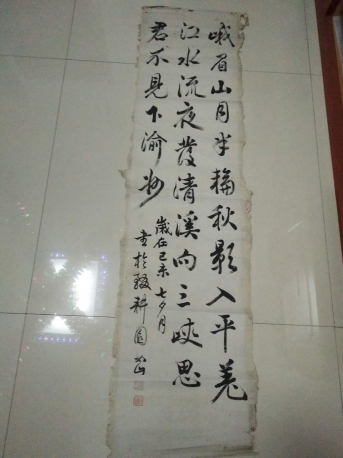 峨眉山月半輪秋影入平羌
江水流夜發清溪向三峽思
君不見下渝州
歲在己未七夕月
書於輟耕園